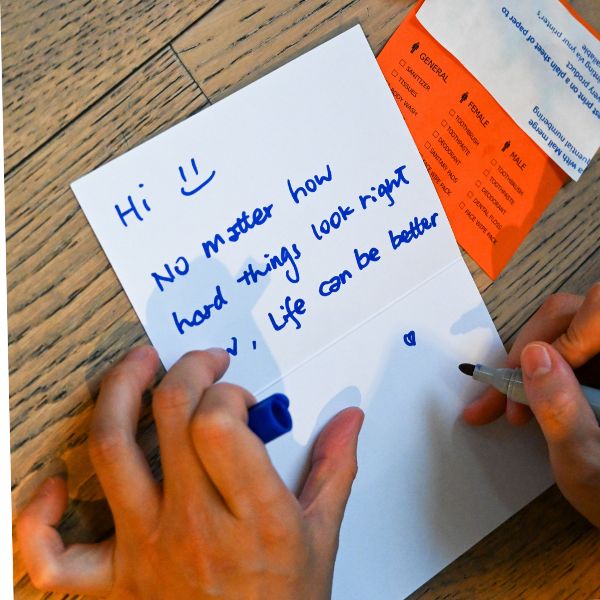 Hi
No matter how
hard things look right
, Life can be better
GENERAL
SANITIZER
TISSUES
BODY WASH
FEMALE
TOOTHBRUSH
TOOTHPASTE
DEODORANT
SANITARY PADS
FACE WIPE PACK
MALE
TOOTHBRUSH
TOOTHPASTE
DEODORANT
DENTAL FLOSS
FACE WIPE PACK
print on a plain sheet of paper to
very product
via your printer's
a with Mail merge
quential numbering